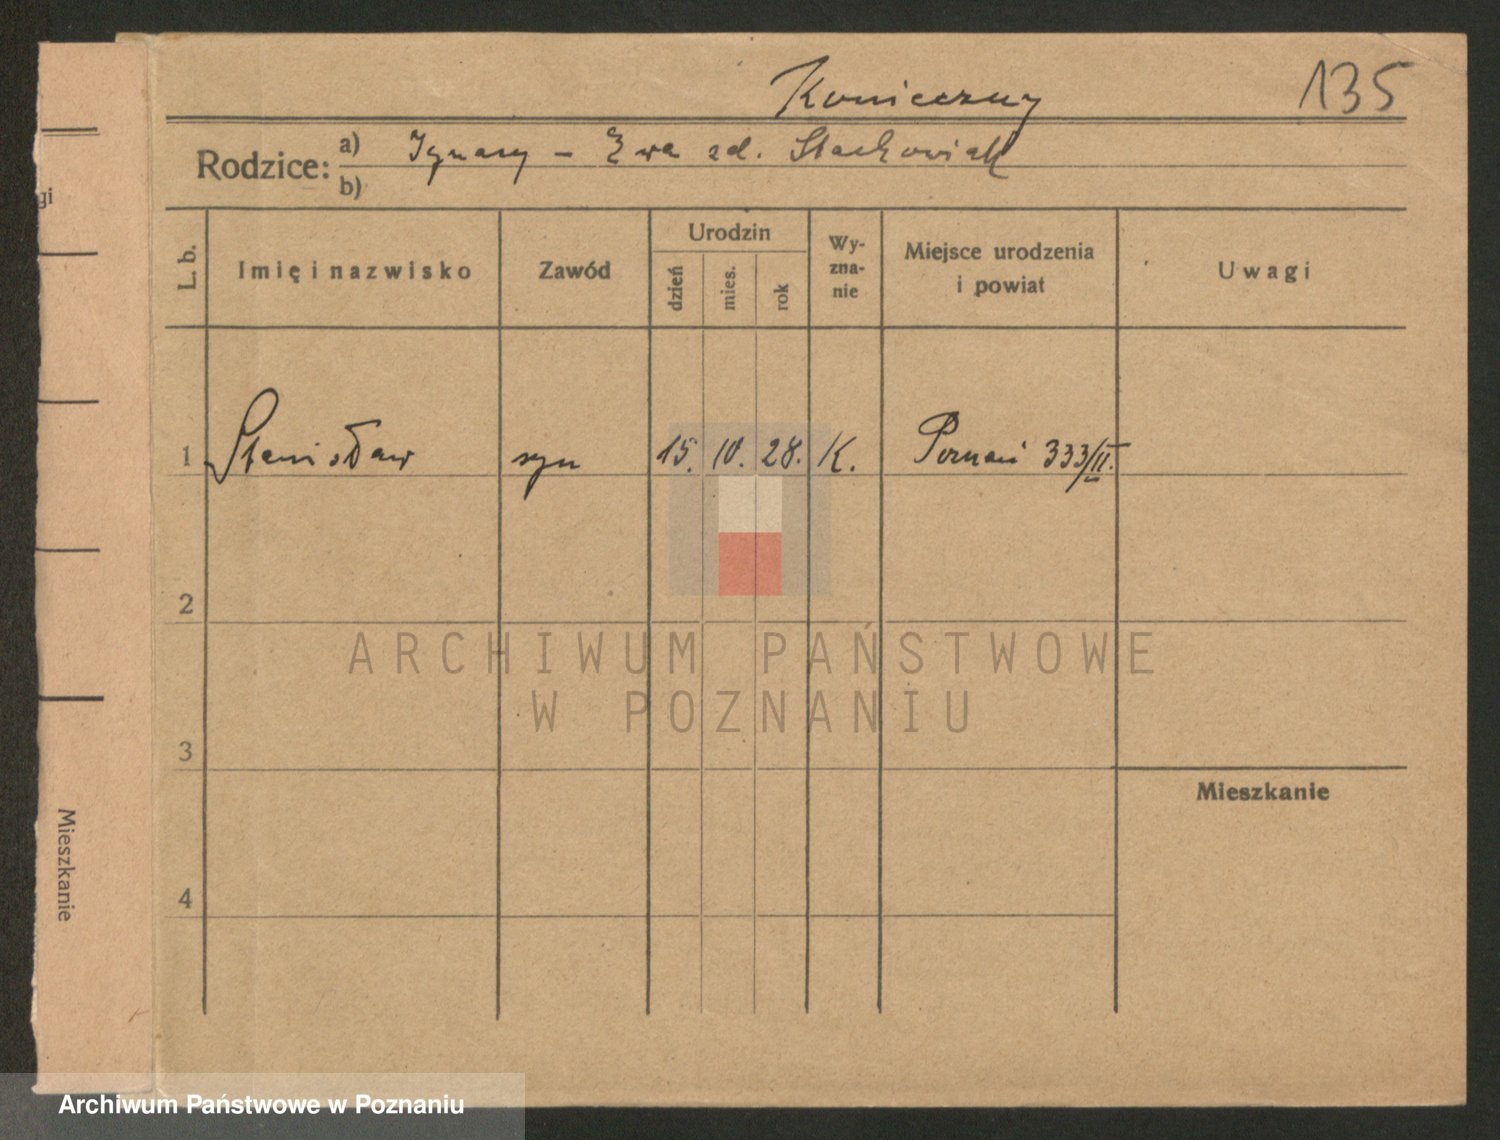 Konieczny 135
Rodzice: a) Ignacy – Ewa zd. Stachowiak
b)
gi
L. b.
Imię i nazwisko
Zawód
Urodzin
dzień
mies.
rok
Wy-
zna-
nie
Miejsce urodzenia
i powiat
Uwagi
1 Stanisław syn 15. IV. 28. K. Poznań 333/II.
2
ARCHIWUM PAŃSTWOWE
W POZNANIU
3
Mieszkanie
Mieszkanie
4
Archiwum Państwowe w Poznaniu